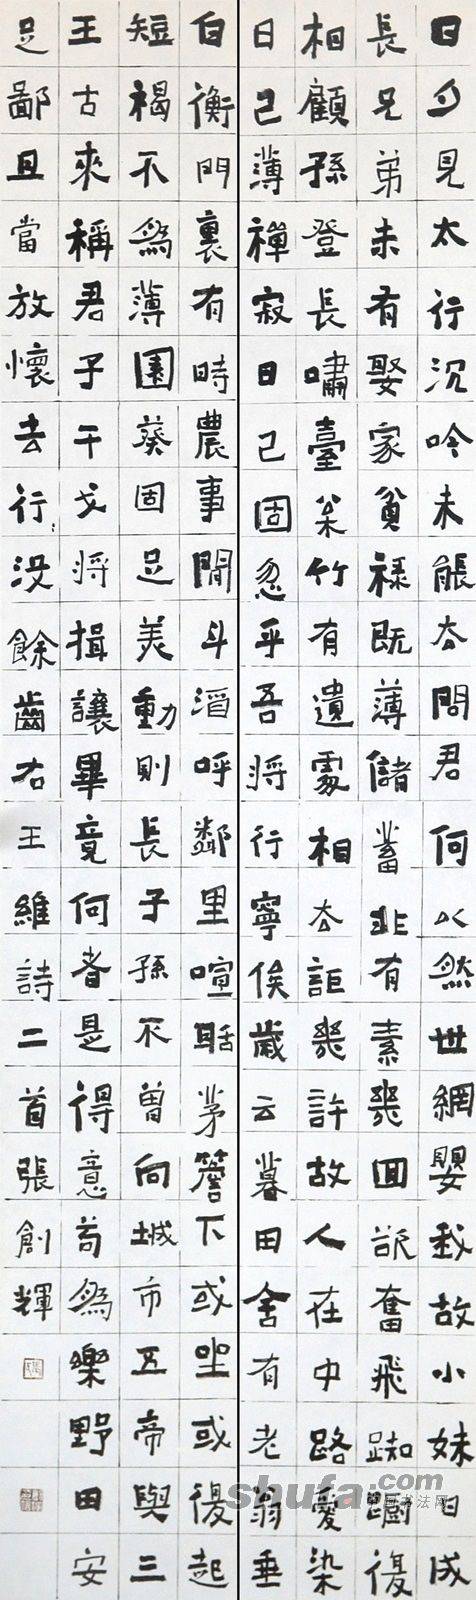 日夕見太行沉吟未能去問君何以然世網嬰我故小妹日成
長兄弟未有娶家貧禄既薄儲蓄非有素幾回欲奮飛踟蹰復
相顧孫登長嘯臺松竹有遺處相去詎幾許故人在中路愛染
日已薄禪寂日已固忽乎吾將行寧俟歲云暮田舍有老翁垂
白衡門裏有時農事閒斗酒呼鄰里喧聒茅簷下或坐或復起
短褐不為薄園葵固足美動則長子孫不曾向城市五帝與三
王古來稱君子干戈將揖讓畢竟何者是得意苟為樂野田安
足鄙且當放懷去行々没餘齒右王維詩二首張創輝
shufa.com
中国书法网